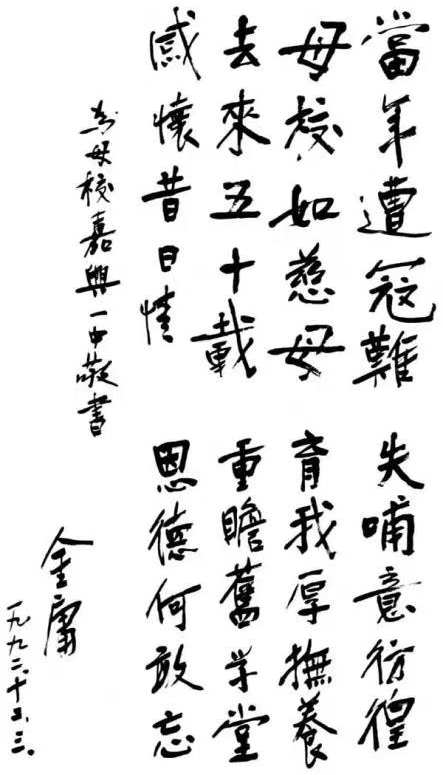 當年遭寇難 失哺意彷徨
母校如慈母 育我厚撫養
去來五十載 重瞻舊学堂
感懷昔日情 恩德何敢忘
为母校嘉興一中敬書
金庸
一九九二.十二.三.